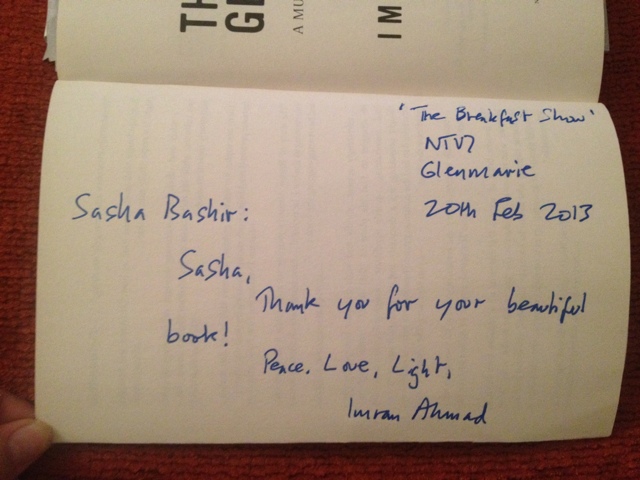 TH
GE
A MU
IM
'The Breakfast Show'
NTV7
Glenmarie
20th Feb 2013
Sasha Bashir:
Sasha,
Thank you for your beautiful
book!
Peace, Love, Light,
Imran Ahmad